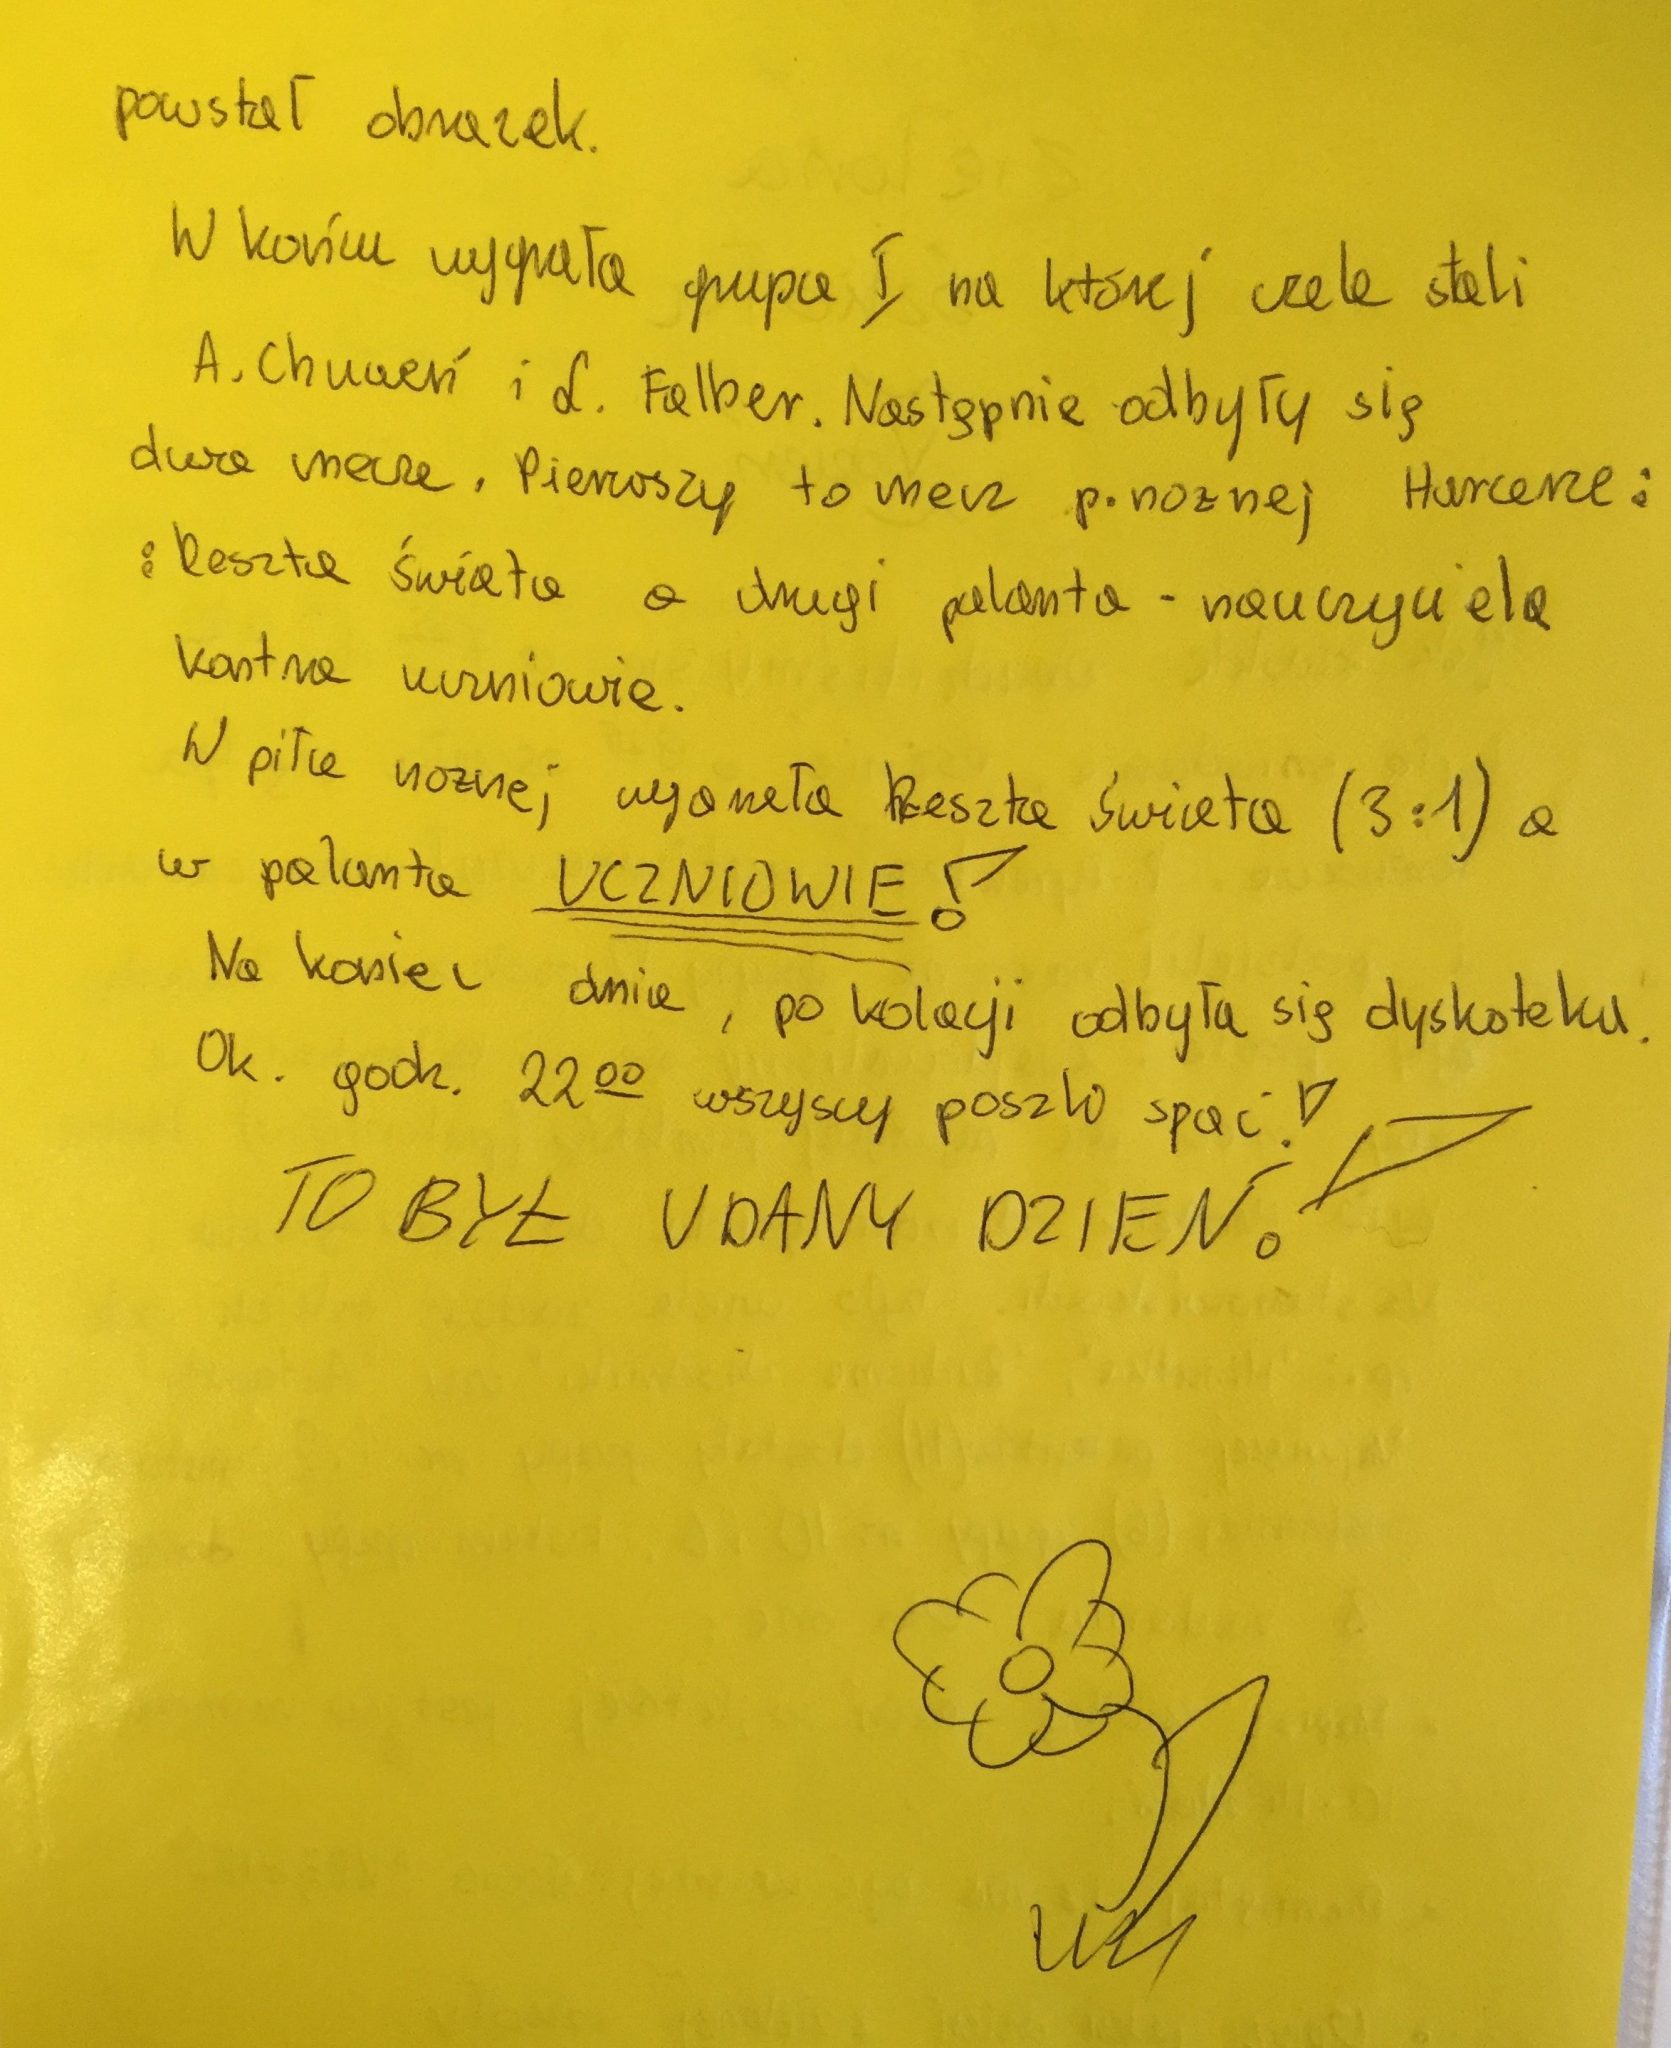 powstał obrazek.
W końcu wygrała grupa I na której czele stali
A. Chuweń i Ł. Falber. Następnie odbyły się
dwa mecze. Pierwszy to mecz p. nożnej Harcerze:
:Reszta świata a drugi palanta - nauczyciele
kontra uczniowie.
W piłce nożnej wygrała Reszta Świata (3:1) a
w palanta UCZNIOWIE!
Na koniec dnia, po kolacji odbyła się dyskoteka.
Ok. godz. 22⁰⁰ wszyscy poszło spać!
TO BYŁ UDANY DZIEŃ!